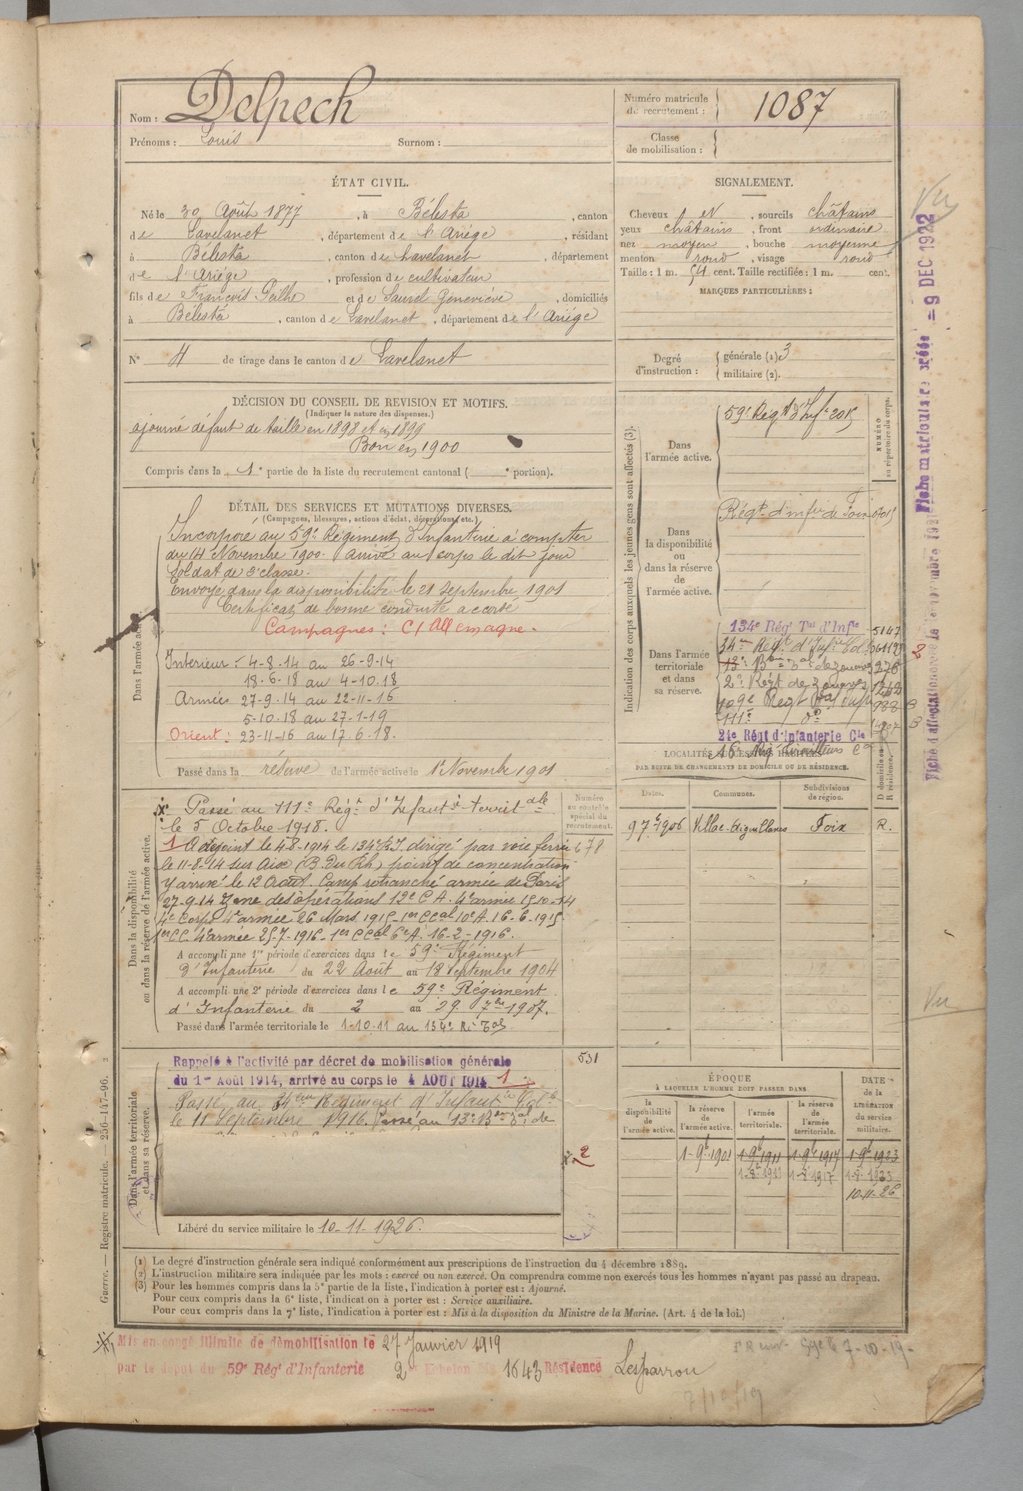 Nom : Delpech
Prénoms : Louis Surnom :
Numéro matricule
de recrutement : 1087
Classe
de mobilisation :
ÉTAT CIVIL.
Né le 30 Août 1877, à Bélesta, canton
de Lavelanet, département de l'Ariège, résidant
à Bélesta, canton de Lavelanet, département
de l'Ariège, profession de cultivateur
fils de François et de Saurel Geneviève, domiciliés
à Bélesta, canton de Lavelanet, département de l'Ariège
SIGNALEMENT.
Cheveux et, sourcils châtains
yeux châtains, front ordinaire
nez moyen, bouche moyenne
menton rond, visage rond
Taille : 1 m. 54 cent. Taille rectifiée : 1 m. cent.
MARQUES PARTICULIÈRES :
N° 4 de tirage dans le canton de Lavelanet
Degré
d'instruction :
générale (1) 3
militaire (2).
DÉCISION DU CONSEIL DE REVISION ET MOTIFS.
(Indiquer la nature des dispenses.)
ajourné défaut de taille en 1898 et en 1899
Bon en 1900
Compris dans la 1e partie de la liste du recrutement cantonal ( e portion).
DÉTAIL DES SERVICES ET MUTATIONS DIVERSES.
(Campagnes, blessures, actions d'éclat, décorations, etc.)
Dans l'armée active.
Incorporé au 59e Régiment d'Infanterie à compter
du 14 Novembre 1900. Arrivé au corps le dit jour
Soldat de 2e classe.
Envoyé dans la disponibilité le 21 Septembre 1901
Certificat de bonne conduite accordé
Campagnes : C/ Allemagne.
Intérieur - 4-8-14 au 26-9-14
18-6-18 au 4-10-18
Armées 27-9-14 au 22-11-16
5-10-18 au 27-1-19
Orient : 23-11-16 au 17-6-18.
Passé dans la réserve de l'armée active le 1er Novembre 1901
Indication des corps auxquels les jeunes gens sont affectés (3).
NUMÉRO
au répertoire du corps.
Dans
l'armée active.
59e Régt d'Infie 2015
Dans
la disponibilité
ou
dans la réserve
de
l'armée active.
Régt d'infie de Foix
Dans l'armée
territoriale
et dans
sa réserve.
134e Régt Tal d'Infie 5147
34me Régt d'Infie Cole
13e Bon de zouaves
2e Régt de zouaves
109e Régt
111e do
21e Régt d'Infanterie Cle
16e Rég. tirailleurs
LOCALITÉS SUCCESSIVES HABITÉES
PAR SUITE DE CHANGEMENTS DE DOMICILE OU DE RÉSIDENCE.
Dates. Communes. Subdivisions
de région.
D domicile ou
R résidence.
1906 Foix R.
Dans la disponibilité
ou dans la réserve de l'armée active.
Numéro
au contrôle
spécial du
recrutement.
Passé au 111e Régt d'Infanterie territale
le 5 Octobre 1918.
1 Rejoint le 4-8-1914 le 134e R.I. dirigé par voie ferrée 678
le 11-8-14 sur Aix (B. du Rh) point de concentration
y arrivé le 12 Août. Camp retranché armée de Paris
27-9-14 Zone des opérations 12e C.A. 4e armée 15-10-14
4e Corps 4e armée 26 Mars 1915 1er CCal 10e A. 16-6-1915
1er CC. 4e armée 25-7-1915 - 1er CCal 6e A. 16-2-1916.
A accompli une 1re période d'exercices dans le 59e Régiment
d'Infanterie du 22 Août au 18 Septembre 1904
A accompli une 2e période d'exercices dans le 59e Régiment
d'Infanterie du 2 au 29 7bre 1907.
Passé dans l'armée territoriale le 1-10-11 au 134e R.I Tal
Dans l'armée territoriale
et dans sa réserve.
Rappelé à l'activité par décret de mobilisation générale 531
du 1er Août 1914, arrivé au corps le 4 AOUT 1914 1
Passé au 34ème Régiment d'Infantie Colle
le 11 Septembre 1916. Passé au 13e Bon de
2
Libéré du service militaire le 10-11-1926.
ÉPOQUE
À LAQUELLE L'HOMME DOIT PASSER DANS
DATE
de la
LIBÉRATION
du service
militaire.
la
disponibilité
de
l'armée active.
la réserve
de
l'armée active.
l'armée
territoriale.
la réserve
de l'armée
territoriale.
1-9b 1901 1-9b 1911 1-9b 1917 1-9b 1923
10-11-26
(1) Le degré d'instruction générale sera indiqué conformément aux prescriptions de l'instruction du 4 décembre 1889.
(2) L'instruction militaire sera indiquée par les mots : exercé ou non exercé. On comprendra comme non exercés tous les hommes n'ayant pas passé au drapeau.
(3) Pour les hommes compris dans la 5e partie de la liste, l'indication à porter est : Ajourné.
Pour ceux compris dans la 6e liste, l'indication à porter est : Service auxiliaire.
Pour ceux compris dans la 7e liste, l'indication à porter est : Mis à la disposition du Ministre de la Marine. (Art. 4 de la loi.)
Mis en congé illimité de démobilisation le 27 Janvier 1919
par le dépôt du 59e Rég' d'Infanterie 2e Echelon No 1643 Résidence Lesparrou
7/10/19
Guerre. — Registre matricule. — 256-147-96.
Vu
Fiche matriculaire créée = 9 DEC 1922
Vu